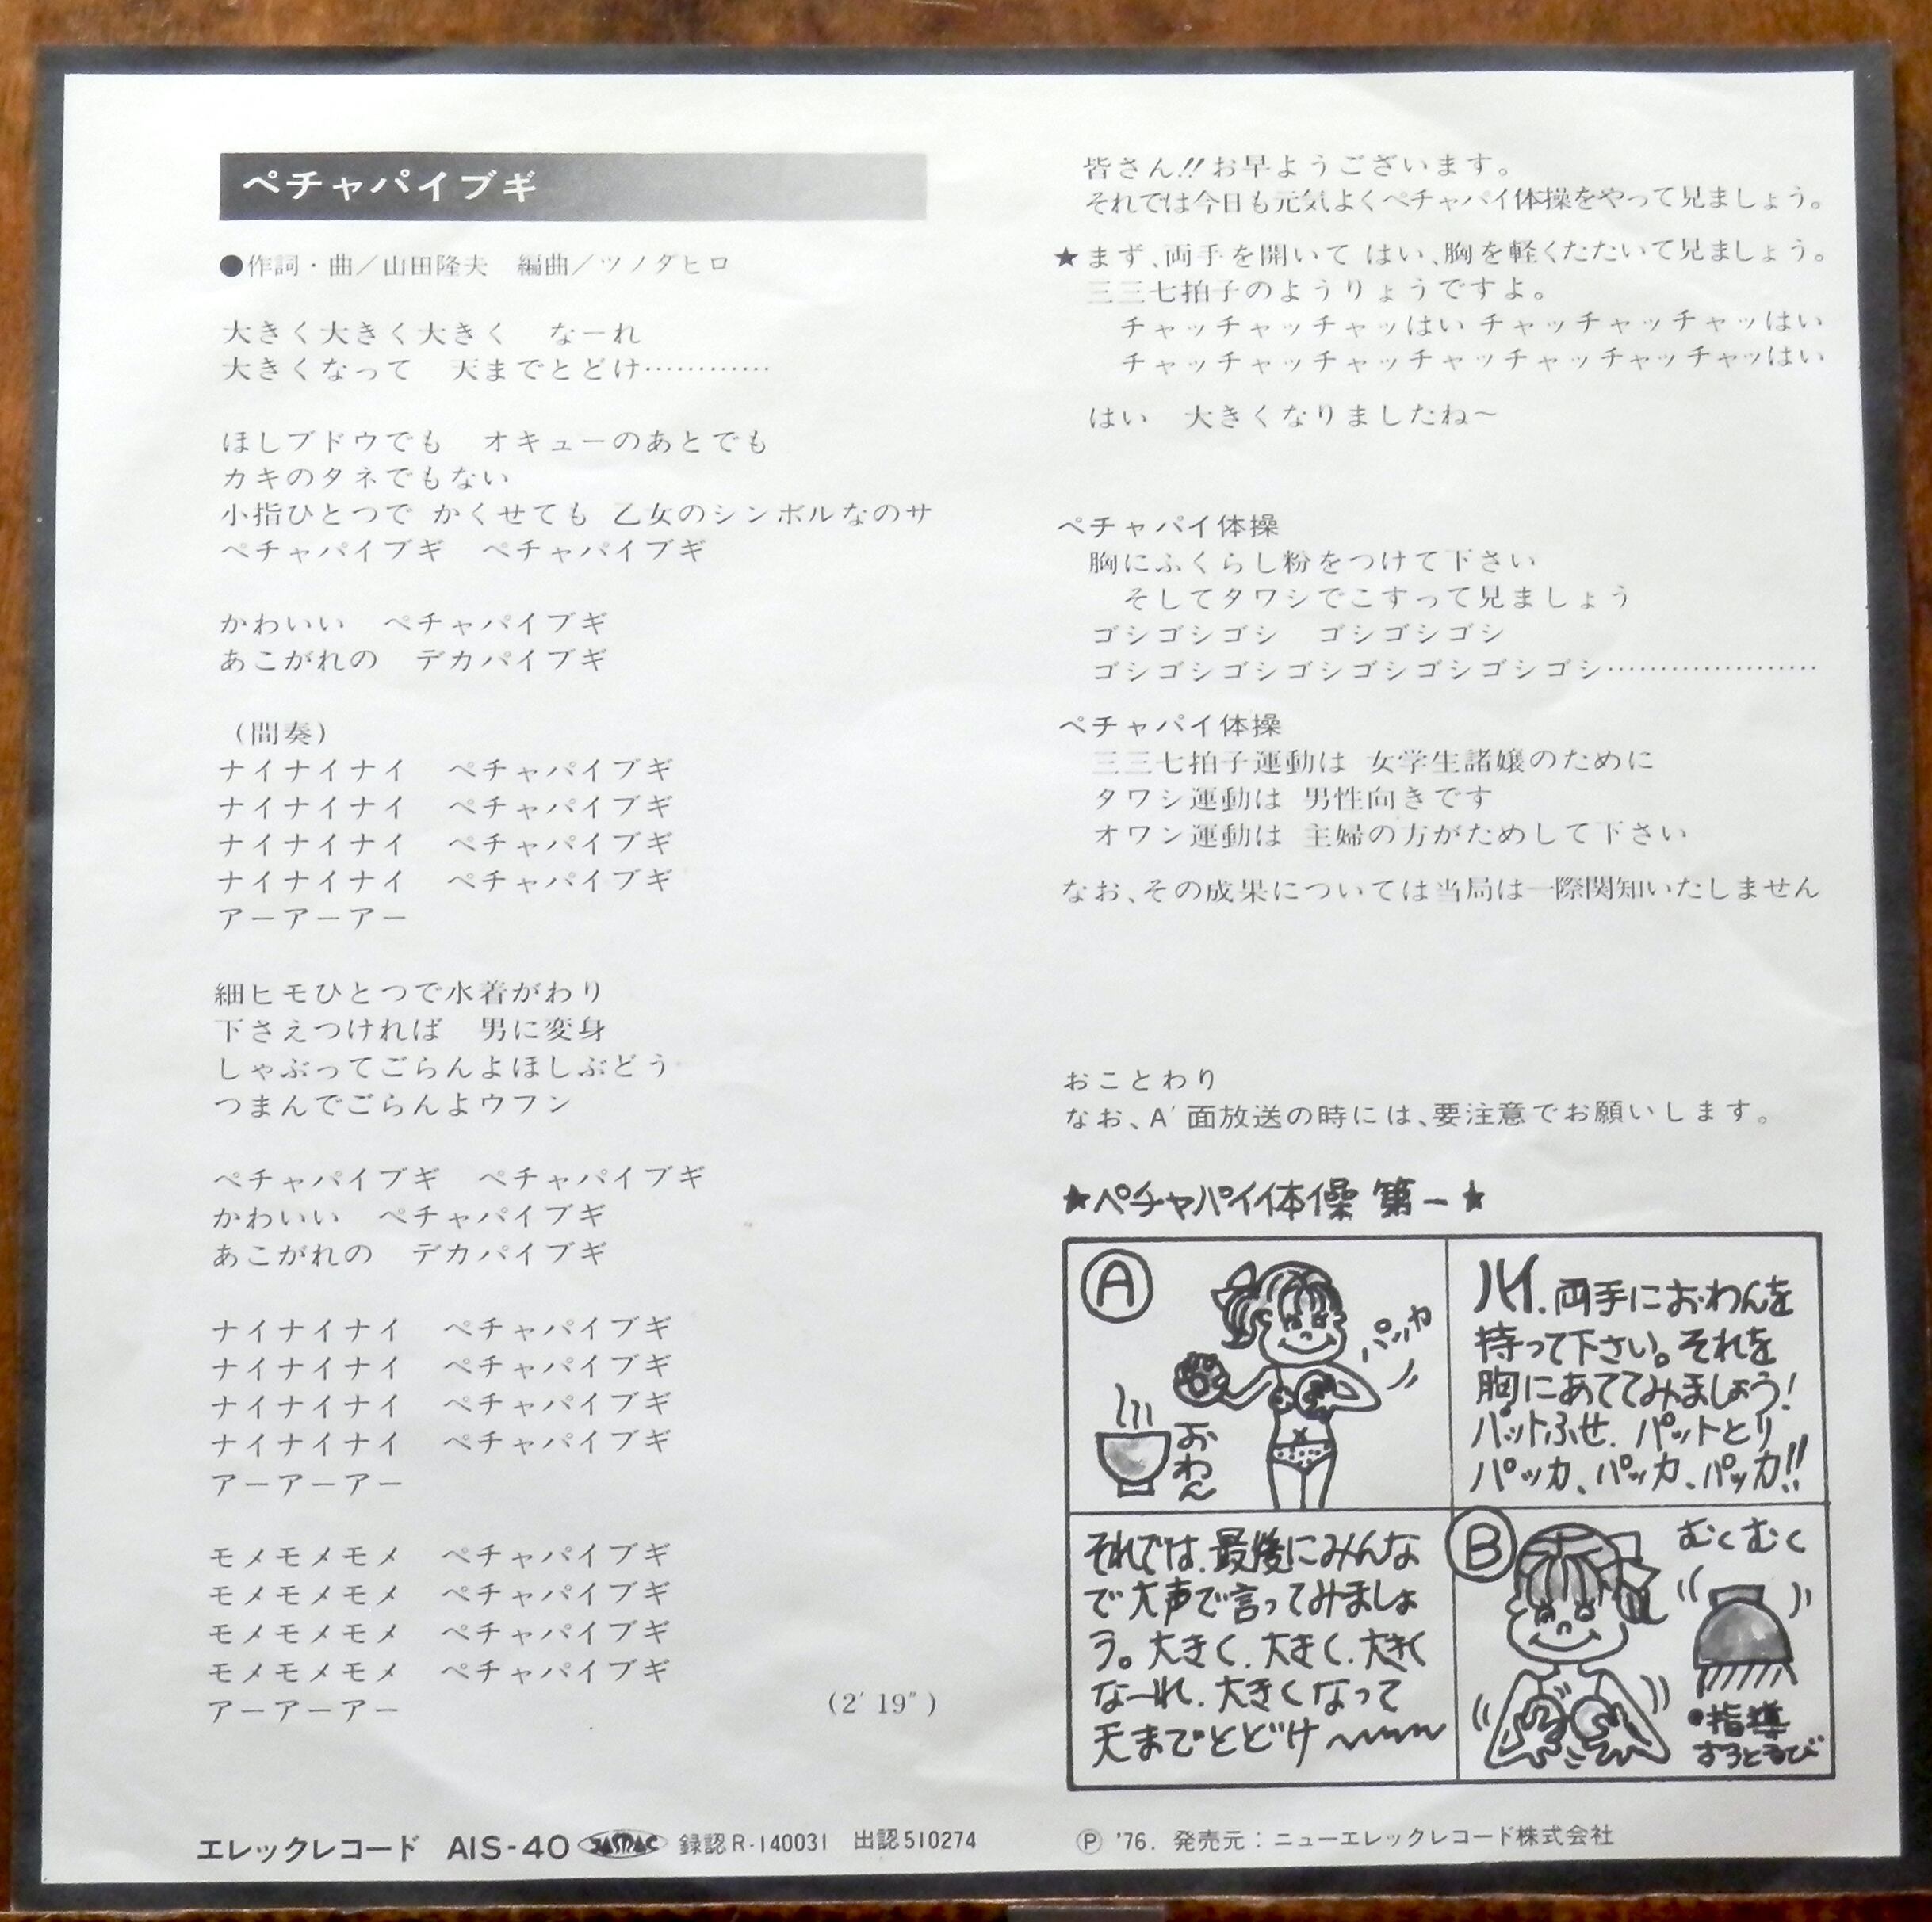 ペチャパイブギ
●作詞・曲／山田隆夫　編曲／ツノダヒロ
大きく大きく大きく　なーれ
大きくなって　天までとどけ…………
ほしブドウでも　オキューのあとでも
カキのタネでもない
小指ひとつで かくせても 乙女のシンボルなのサ
ペチャパイブギ　ペチャパイブギ
かわいい　ペチャパイブギ
あこがれの　デカパイブギ
(間奏)
ナイナイナイ　ペチャパイブギ
ナイナイナイ　ペチャパイブギ
ナイナイナイ　ペチャパイブギ
ナイナイナイ　ペチャパイブギ
アーアーアー
細ヒモひとつで水着がわり
下さえつければ　男に変身
しゃぶってごらんよほしぶどう
つまんでごらんよウフン
ペチャパイブギ　ペチャパイブギ
かわいい　ペチャパイブギ
あこがれの　デカパイブギ
ナイナイナイ　ペチャパイブギ
ナイナイナイ　ペチャパイブギ
ナイナイナイ　ペチャパイブギ
ナイナイナイ　ペチャパイブギ
アーアーアー
モメモメモメ　ペチャパイブギ
モメモメモメ　ペチャパイブギ
モメモメモメ　ペチャパイブギ
モメモメモメ　ペチャパイブギ
アーアーアー
(2′19″)
皆さん!!お早ようございます。
それでは今日も元気よくペチャパイ体操をやって見ましょう。
★まず、両手を開いて はい、胸を軽くたたいて見ましょう。
三三七拍子のようりょうですよ。
チャッチャッチャッはい チャッチャッチャッはい
チャッチャッチャッチャッチャッチャッチャッはい
はい　大きくなりましたね〜
ペチャパイ体操
胸にふくらし粉をつけて下さい
そしてタワシでこすって見ましょう
ゴシゴシゴシ　ゴシゴシゴシ
ゴシゴシゴシゴシゴシゴシゴシゴシ…………………
ペチャパイ体操
三三七拍子運動は 女学生諸嬢のために
タワシ運動は 男性向きです
オワン運動は 主婦の方がためして下さい
なお、その成果については当局は一際関知いたしません
おことわり
なお、A′面放送の時には、要注意でお願いします。
★ペチャパイ体操 第一★
A
パッカ
おわん
ハイ.両手におわんを
持って下さい。それを
胸にあててみましょう!
パットふせ.パットとり
パッカ、パッカ、パッカ!!
それでは.最後にみんな
で大声で言ってみましょ
う。大きく.大きく.大きく
なーれ.大きくなって
天までとどけ〜〜〜
B
むくむく
●指導
ずうとるび
エレックレコード　AIS-40 JASRAC 録認R-140031　出認510274
Ⓟ '76. 発売元：ニューエレックレコード株式会社